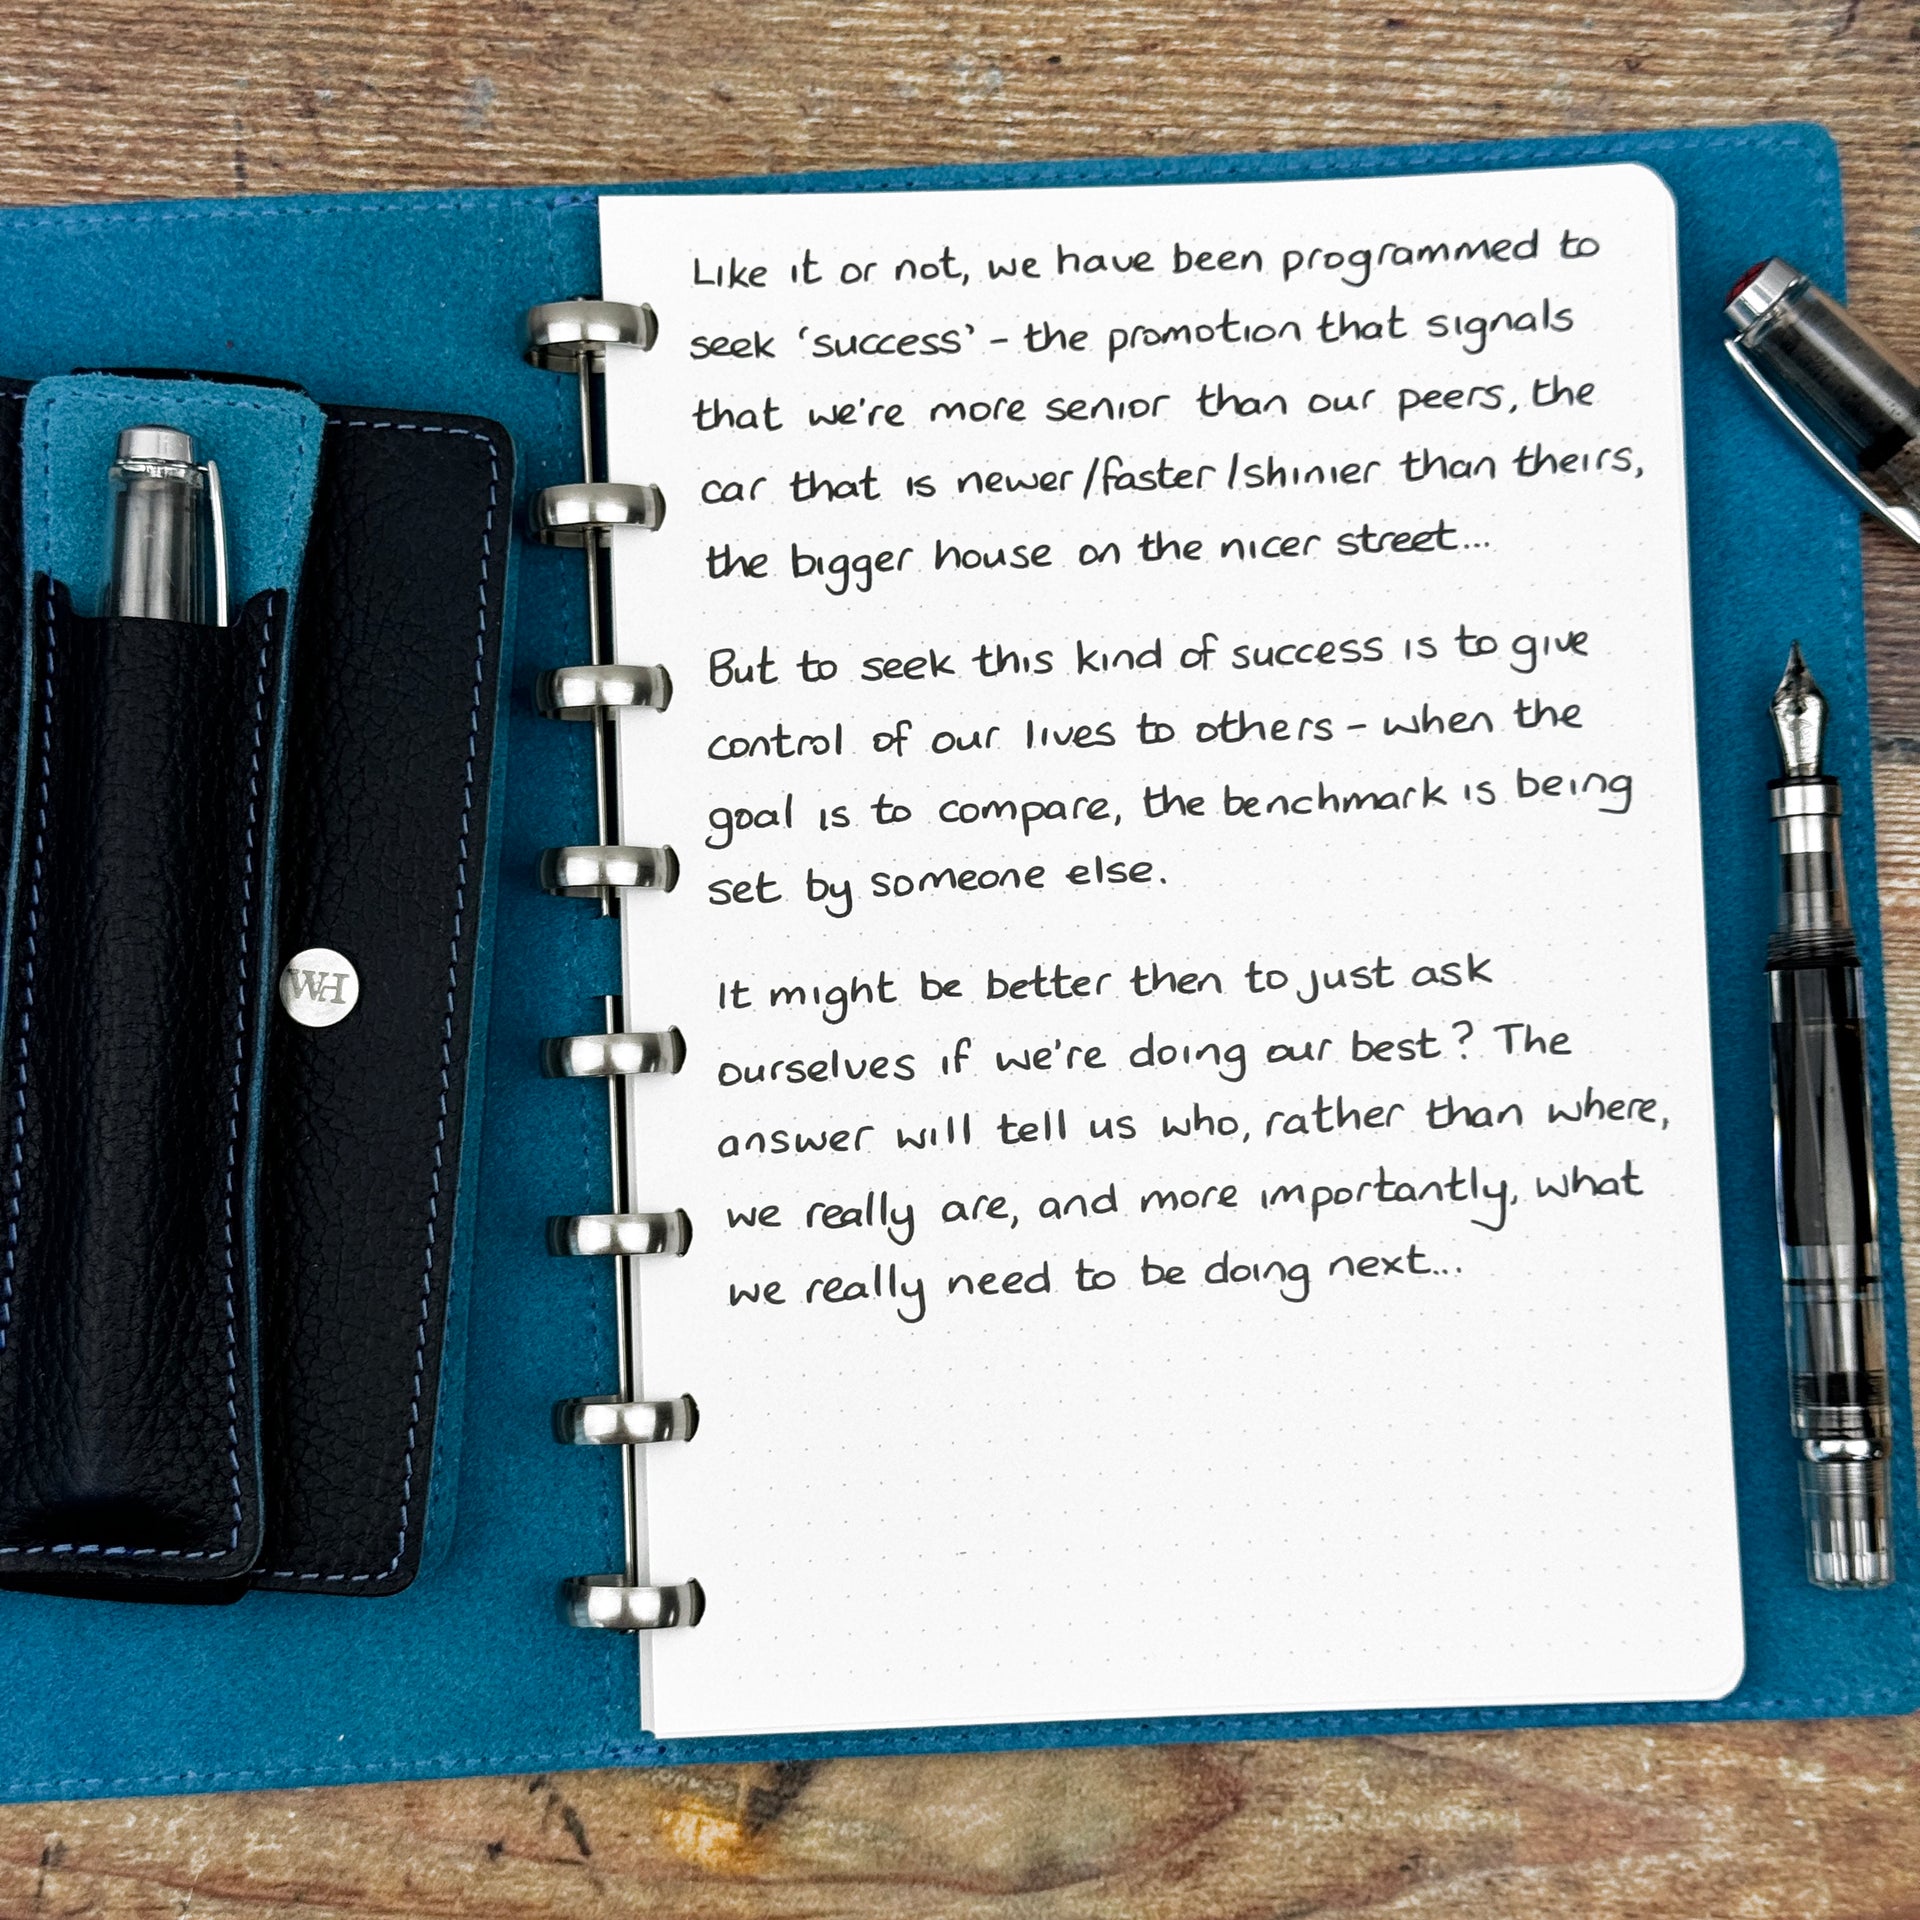 Like it or not, we have been programmed to
seek ‘success’ – the promotion that signals
that we're more senior than our peers, the
car that is newer/faster/shinier than theirs,
the bigger house on the nicer street...
But to seek this kind of success is to give
control of our lives to others – when the
goal is to compare, the benchmark is being
set by someone else.
It might be better then to just ask
ourselves if we're doing our best? The
answer will tell us who, rather than where,
we really are, and more importantly, what
we really need to be doing next...
WH